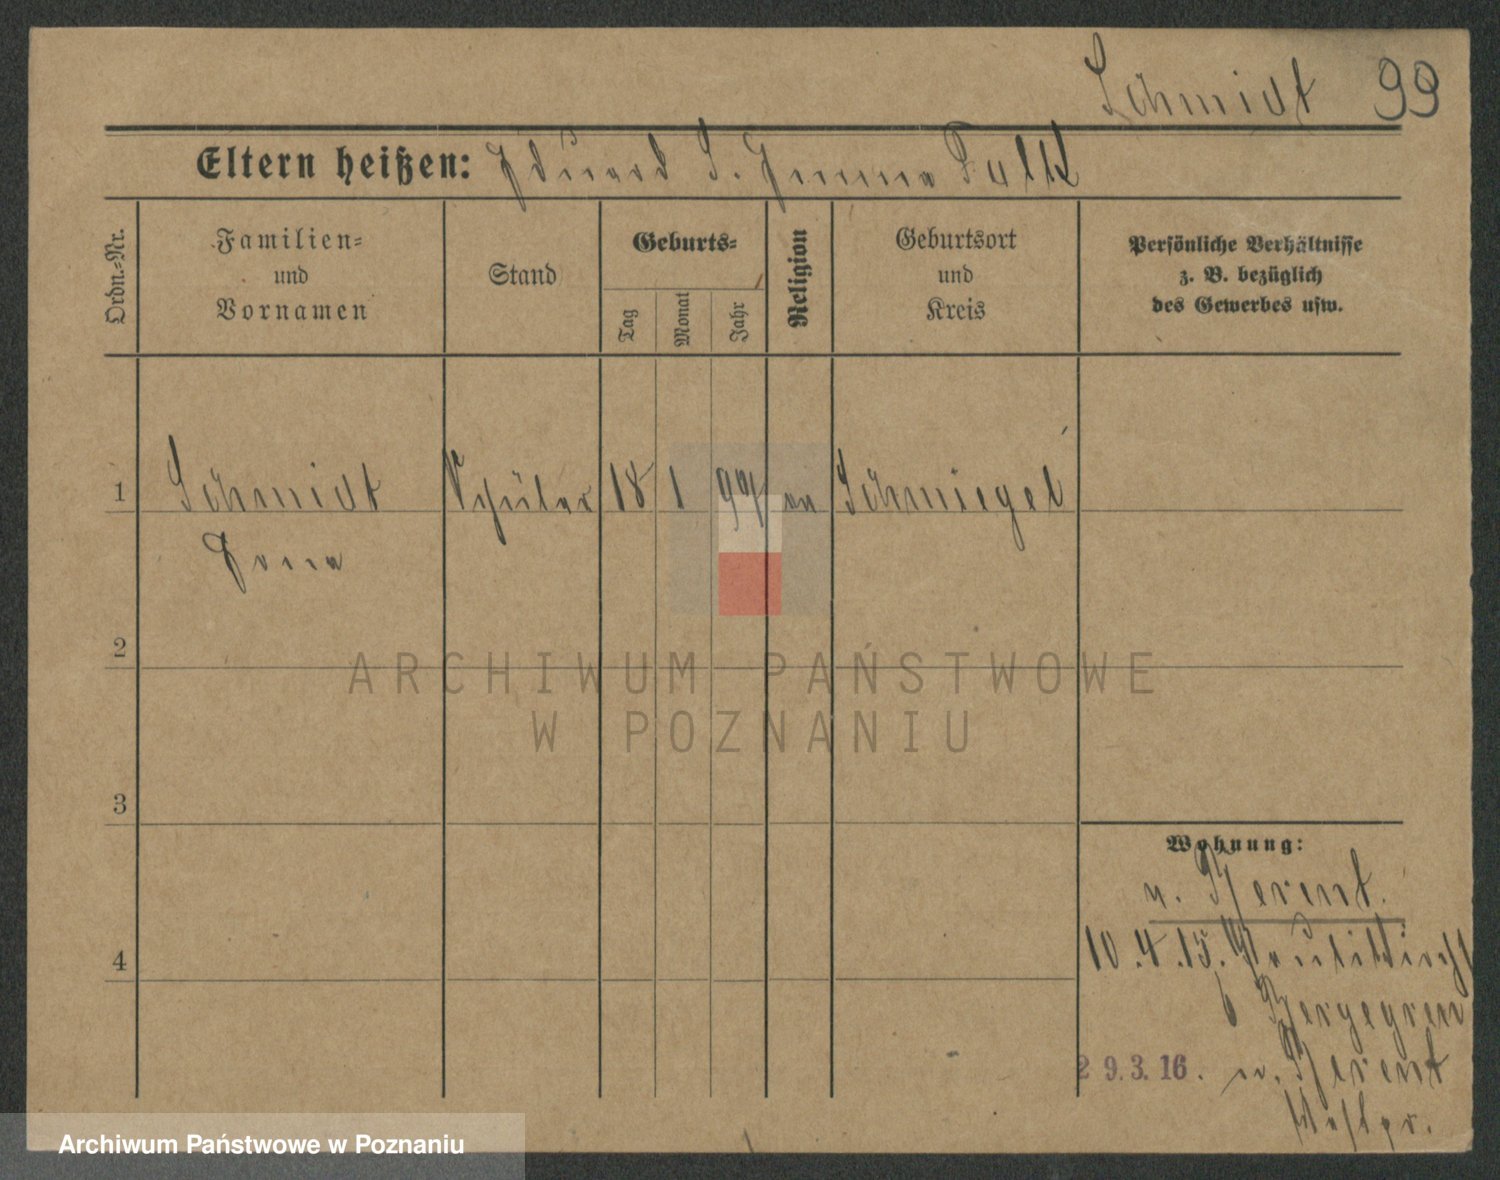 Schmidt 99
Eltern heißen: Eduard S. Emma Falk
Ordn.=Nr.
Familien=
und
Vornamen
Stand
Geburts=
Tag
Monat
Jahr
Religion
Geburtsort
und
Kreis
Persönliche Verhältnisse
z. B. bezüglich
des Gewerbes usw.
1 Schmidt Schüler 18 1 99 ev Schmiegel
Erna
2
3
4
Wohnung:
n. Berent.
10.4.15.
b
29.3.16. n. Berent
Westpr.
ARCHIWUM PAŃSTWOWE
W POZNANIU
Archiwum Państwowe w Poznaniu